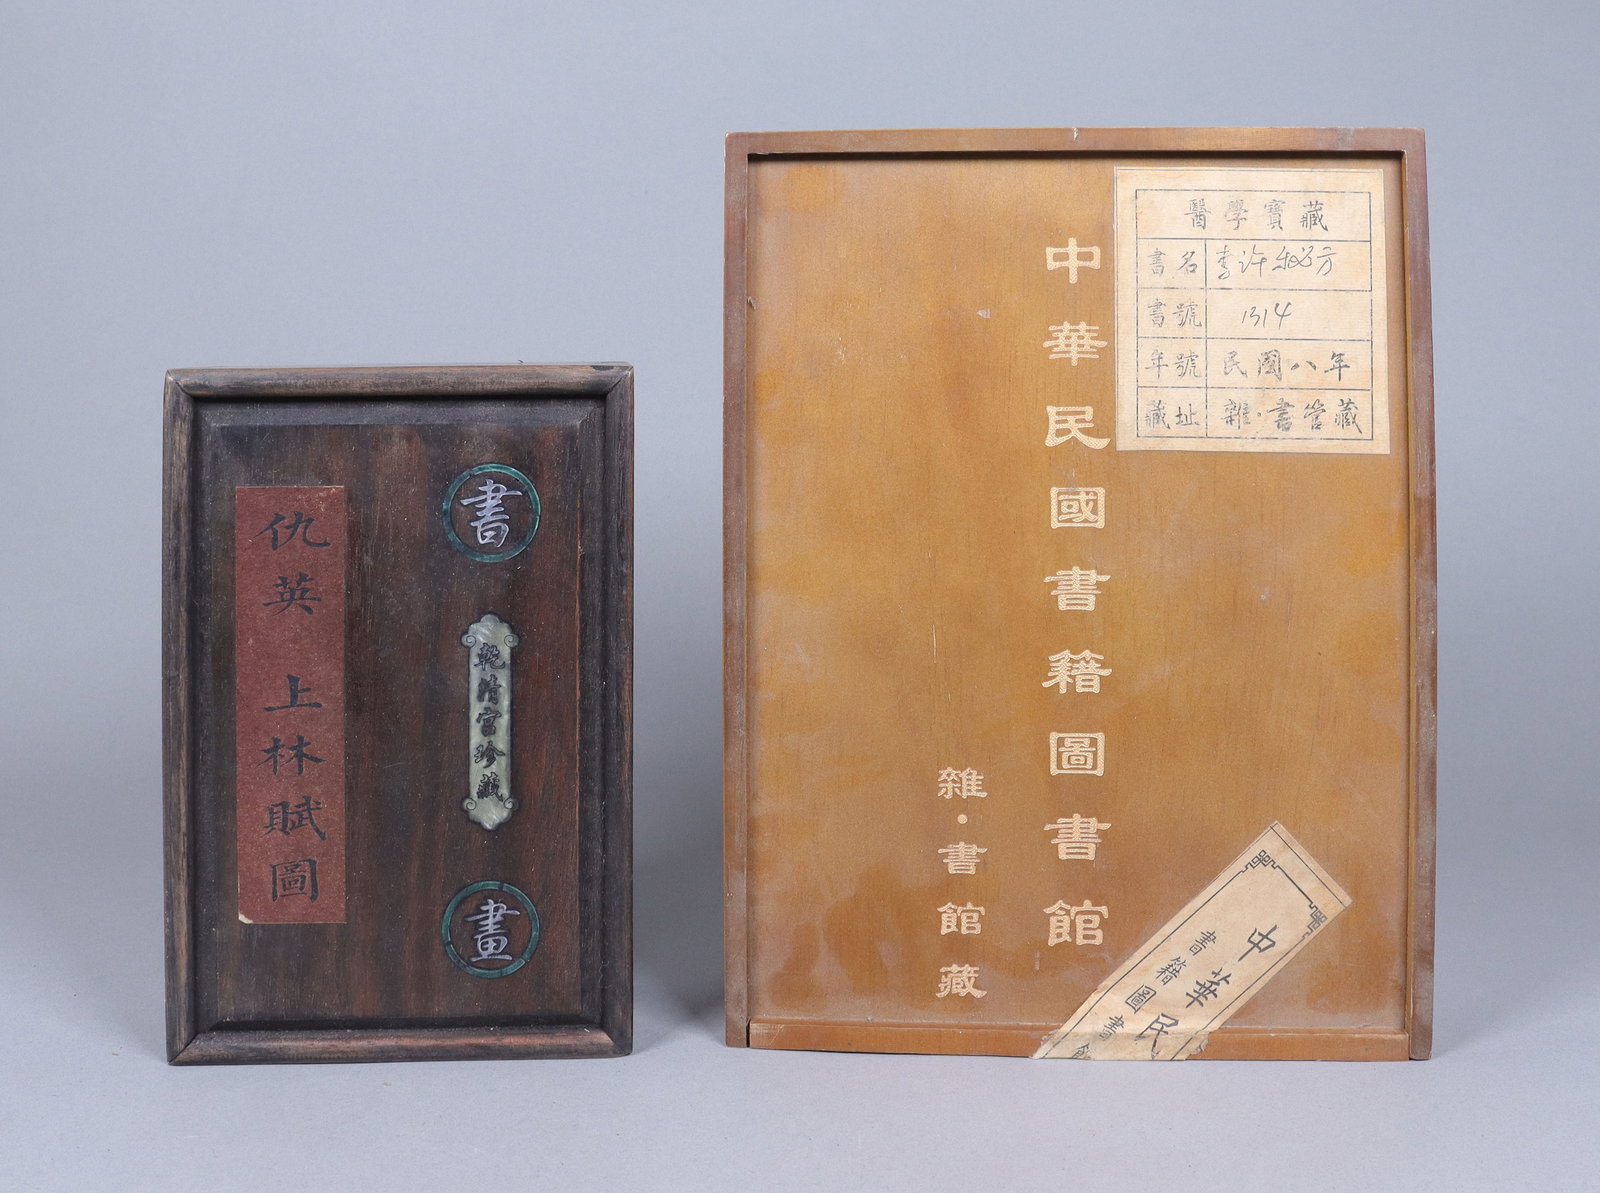 仇英 上林賦圖
書
乾清宮珍藏
畫
中華民國書籍圖書館
雜·書館藏
醫學寶藏
書名 秘方
書號 1314
年號 民國八年
藏址 雜·書管藏
中華民
書籍圖書館